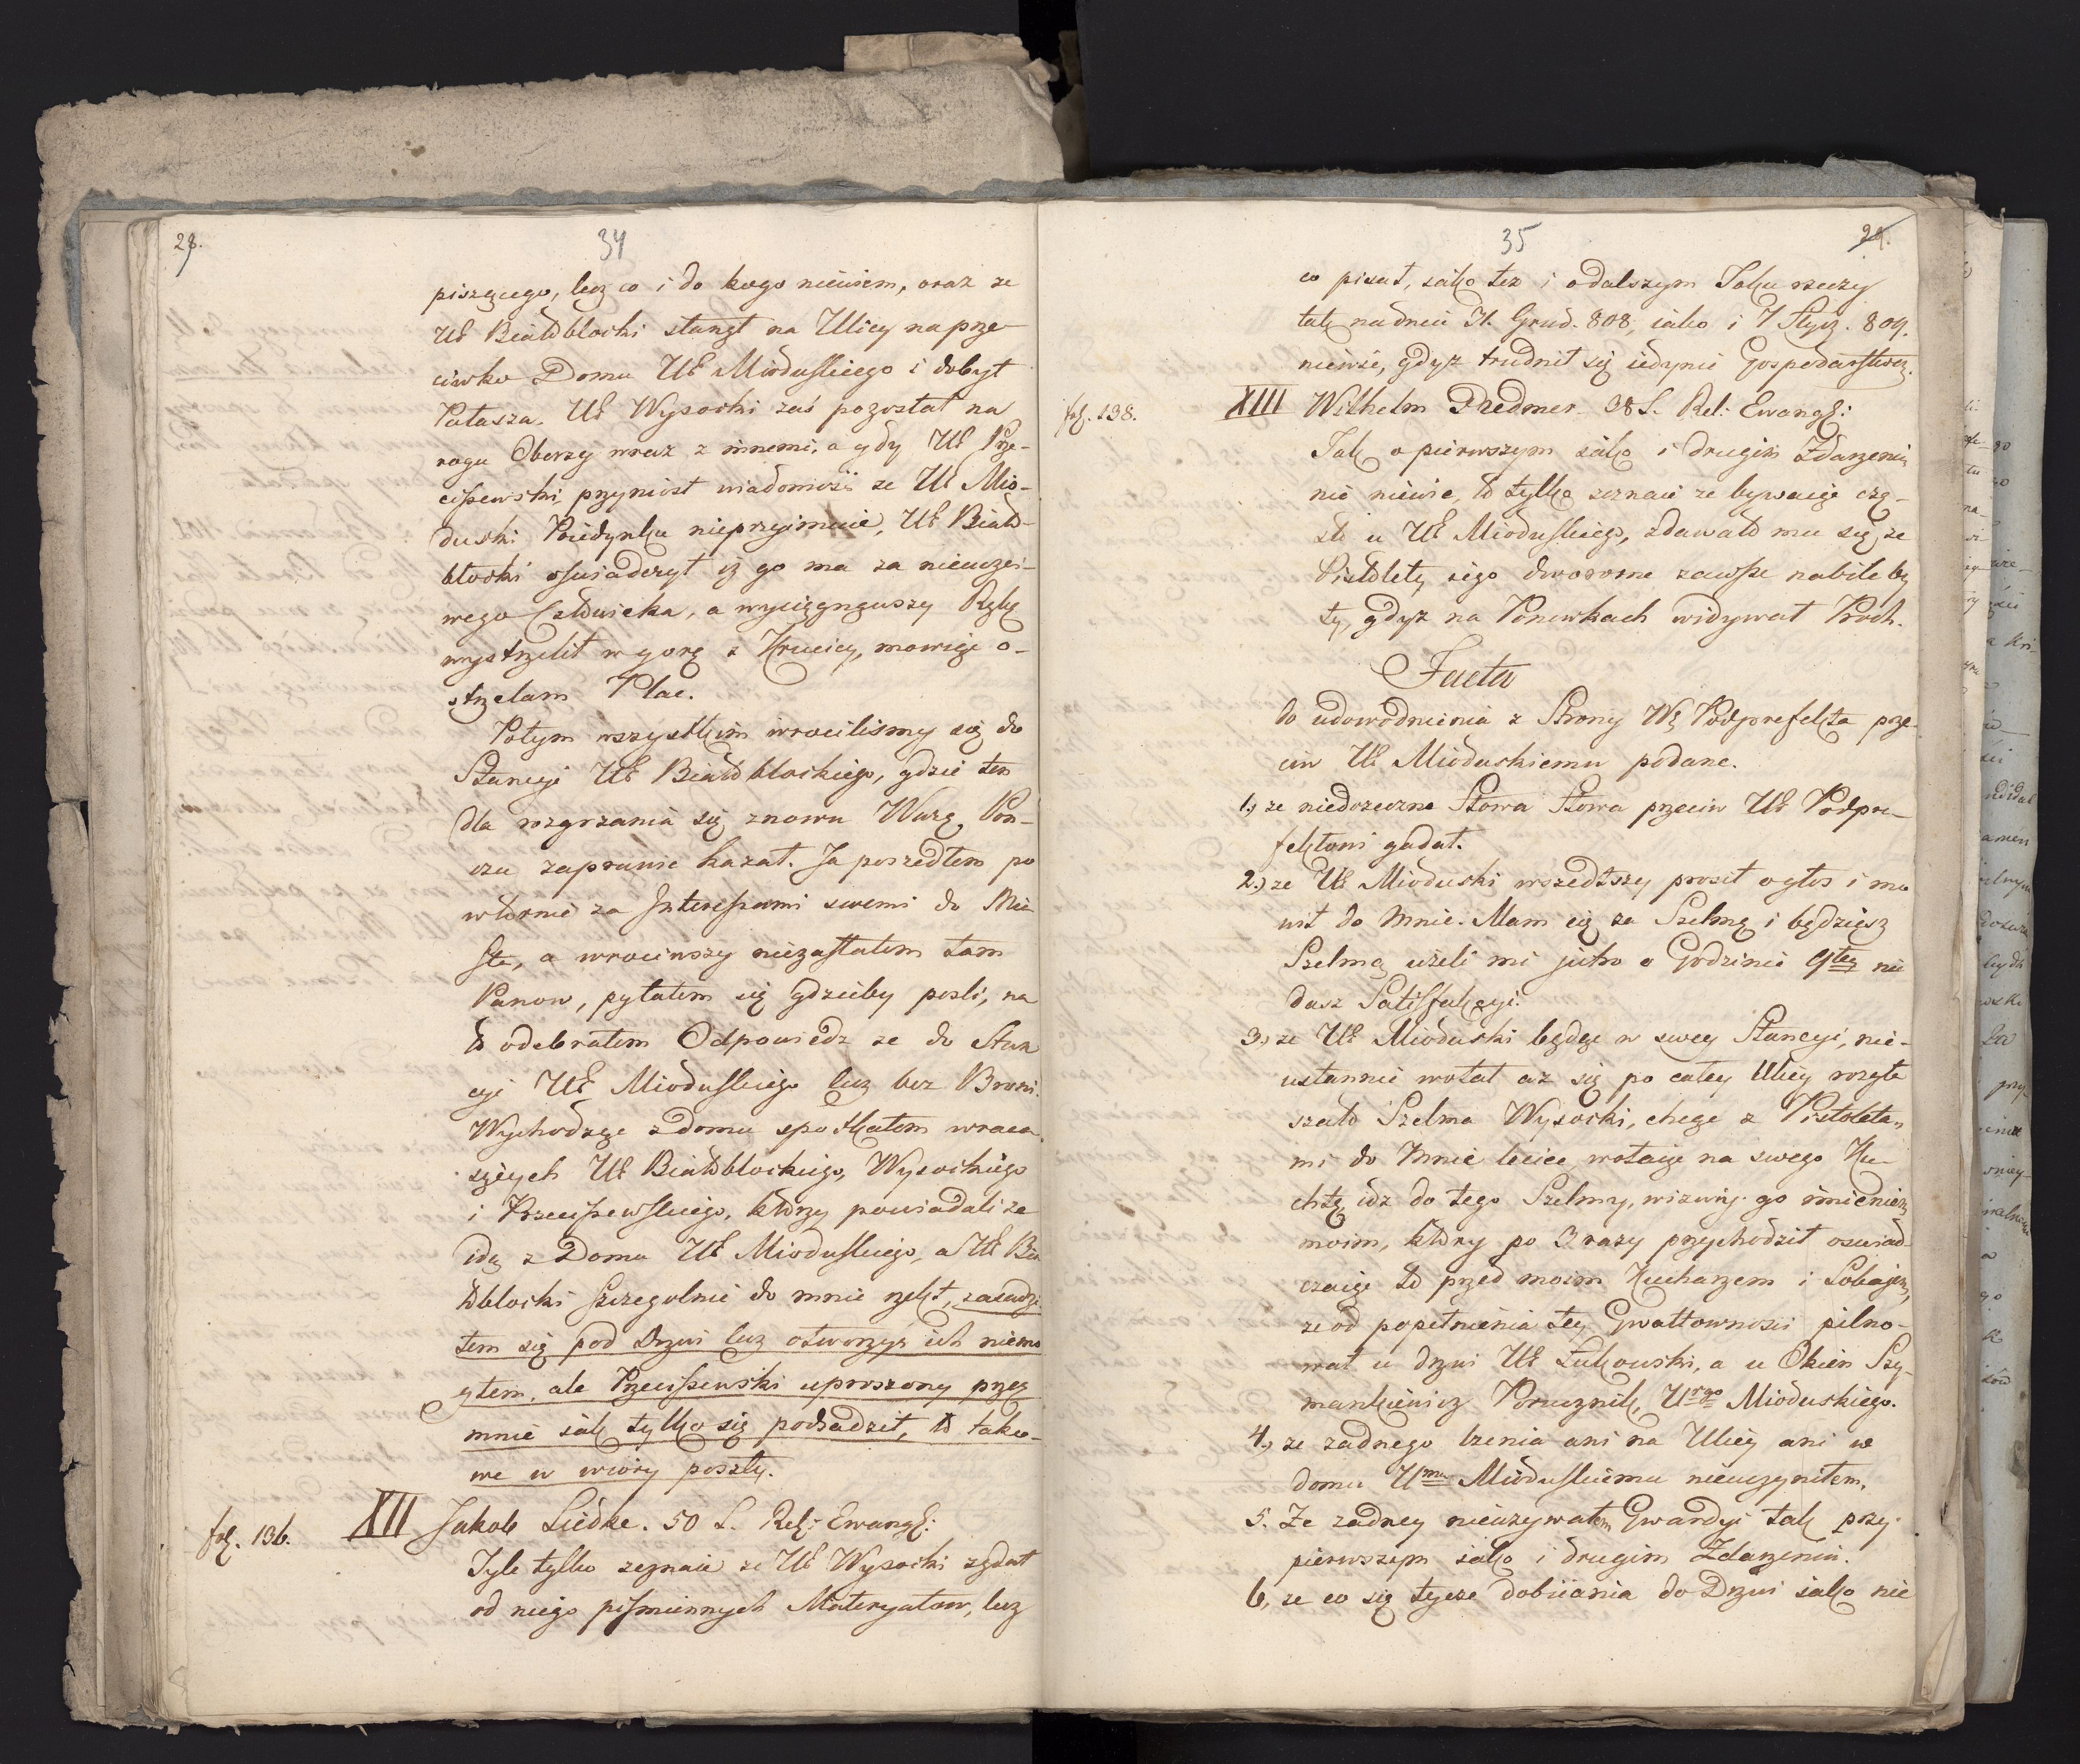 28.
34
piszącego, lecz co i do kogo niewiem, oraz ze
Ur Białobłocki stanął na Ulicy naprze-
ciwko Domu Ur Mioduskiego i dobył
Pałasza. Ur Wysocki zaś pozostał na
rogu Oberzy wraz z innemi, a gdy Ur Prze-
ciszewski przyniosł wiadomość ze Ur Mio-
duski Poiedynku nieprzyimuie, Ur Biało-
błocki oswiadczył iż go ma za nieuczci-
wego Człowieka, a wyciągnąwszy Rękę
wystrzelił w gorę z Krucicy, mowiąc o-
strzelam Plac.
Potym wszystkim wrocilismy się do
Stancyi Ur Białobłockiego, gdzie ten
dla rozgrzania się znowu Wazę Pon-
czu zaprawic kazał. Ja poszedłem po
wtornie za Interessami swemi do Mia
sta, a wrociwszy niezastałem tam
Panow, pytałem się gdzieby posli, na
to odebrałem Odpowiedz ze do Stan
cyi Ur Mioduskiego lecz bez Broni.
Wychodząc z domu spotkałem wraca
iących Ur Białobłockiego, Wysockiego
i Przeciszewskiego, ktorzy powiadali ze
idą z Domu Ur Mioduskiego, a Ur Bia
łobłocki szczegulnie do mnie rzekł, zasadzi
łem się pod Drzwi lecz otworzyć ich niemo
głem, ale Przeciszewski uproszony przez
mnie iak tylko się podsadził, to tako-
we w wiory poszły.
fol. 136.
XII Jakob Liedke. 50 L. Rel: Ewangl:
Tyle tylko zeznaie ze Ur Wysocki ządał
od niego pismiennych Materyałow, lecz
35
29.
co pisał, iako tez i odalszym Toku rzeczy
tak nadniu 31. Grud. 808, iako i 7 Stycz. 809.
niewie, gdyz trudnił się iedynie Gospodarstwem.
fol. 138.
XIII Wilhelm Dedmer 38 L. Rel: Ewangl:
Tak o pierwszym iako i drugim Zdarzeniu
nic niewie, to tylko zeznaie ze bywaiąc czę-
sto u Ur Mioduskiego, zdawało mu się, ze
Pistolety iego dworowe zawsze nabite by
ły, gdyz na Panewkach widywał Proch.
Facta
do udowodnienia z Strony W. Podprefekta prze-
ciw Ur Mioduskiemu podane.
1.) ze niedorzeczne Słowa Słowa przeciw Ur Podpre-
fektowi gadał.
2.) ze Ur Mioduski wszedłszy prosił ogłos i mo
wił do mnie. Mam cię za Szelmę i będziesz
Szelmą ieżeli mi jutro o Godzinie 9tey nie
dasz Satisfakcyi.
3.) ze Ur Mioduski będąc w swey Stancyi, nie-
ustannie wołał az się po całey Ulicy rozle
szało Szelma Wysocki, chcąc z Pistoleta-
mi do mnie leciec, wołaiąc na swego Ku-
chtę idz do tego Szelmy, wizwiy go imieniem
moim, ktory po 3 razy przychodził oswiad-
czaiąc to przed moim Kucharzem i Lokajem,
ze od popełnienia tey Gwałtownosci pilno-
wał u drzwi Ur Zukowski, a u Okien Szy-
mankiewicz Porucznik, Urgo Mioduskiego.
4.) ze zadnego lzenia ani na Ulicy ani w
domu Umu Mioduskiemu nieuczyniłem.
5. Ze zadney nieuzywałem Gwardyi tak przy
pierwszym iako i drugim Zdarzeniu.
6, ze co się tycze dobiiania do Drzwi iako nie